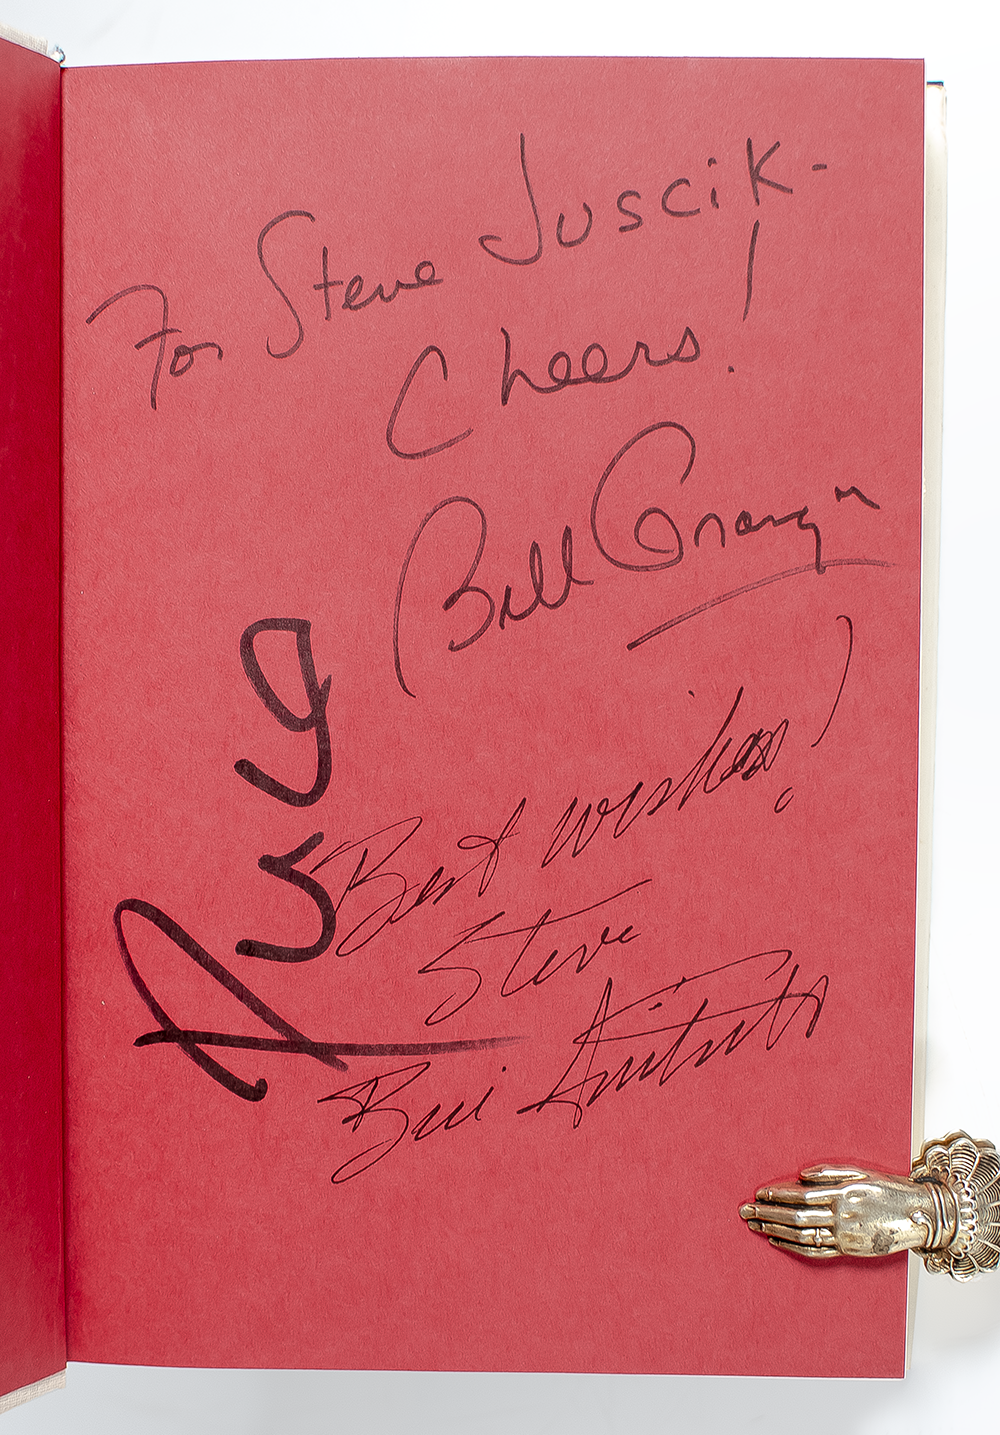 For Steve Juscik -
Cheers!
Bill Granger
Best wishes!
Steve
Bill